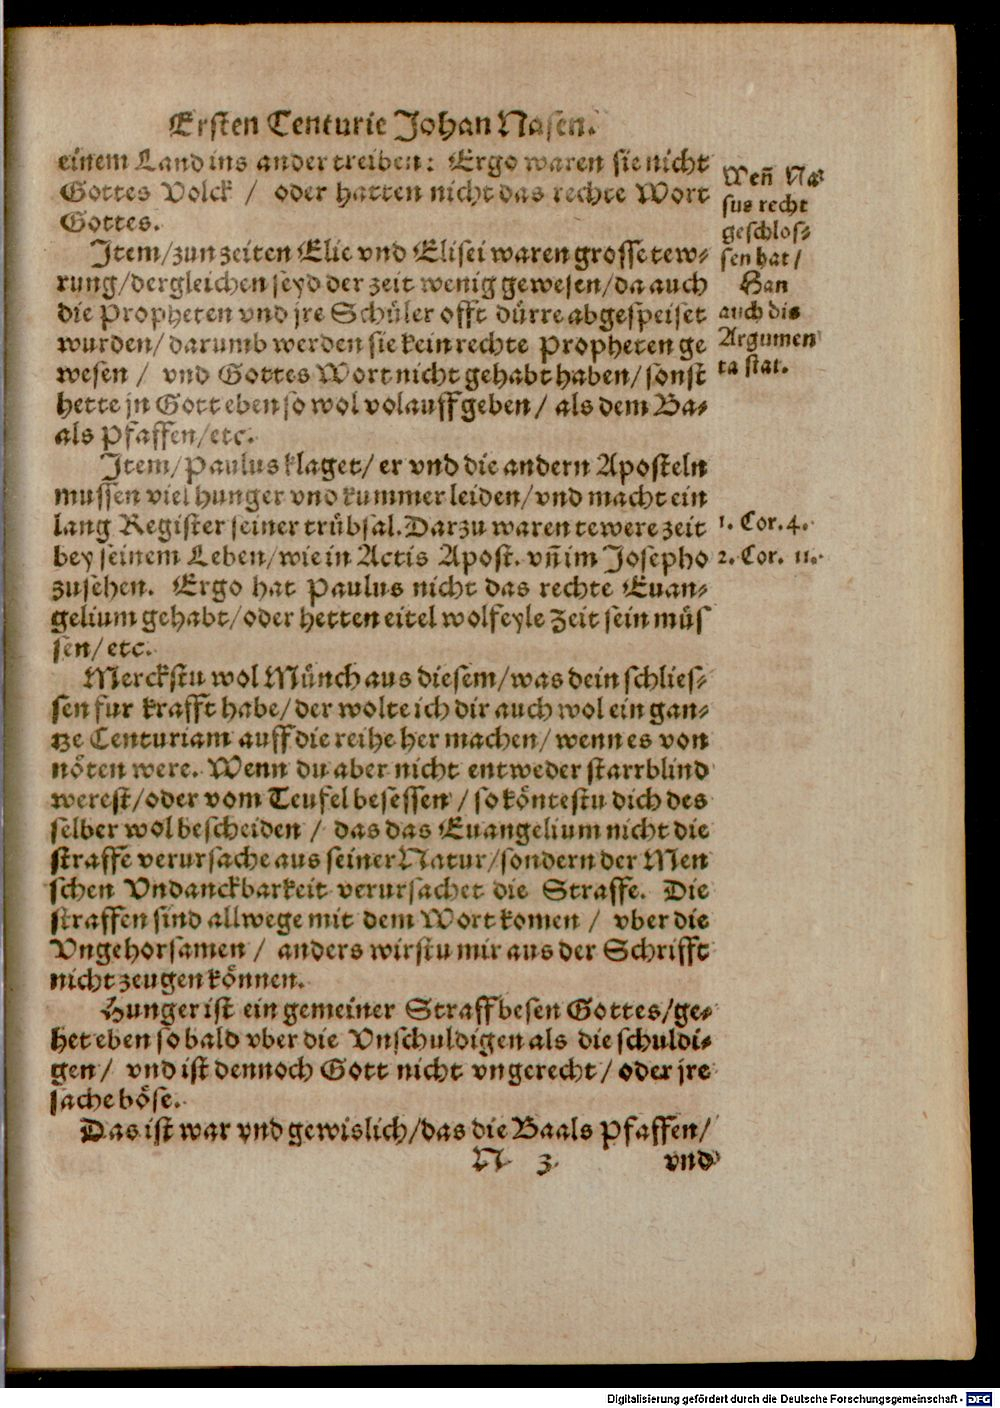 Ersten Centurie Johan Nasen.
einem Land ins ander treiben: Ergo waren sie nicht
Gottes Volck / oder hatten nicht das rechte Wort
Gottes.
Item/zun zeiten Elie vnd Elisei waren grosse tew-
rung/dergleichen seyd der zeit wenig gewesen/da auch
die Propheten vnd jre Schüler offt dürre abgespeiset
wurden/darumb werden sie kein rechte Propheten ge
wesen / vnd Gottes Wort nicht gehabt haben/sonst
hette jn Gott eben so wol volauff geben / als dem Ba-
als Pfaffen/etc.
Item/Paulus klaget/er vnd die andern Aposteln
mussen viel hunger vnd kummer leiden/vnd macht ein
lang Register seiner trübsal. Darzu waren tewere zeit
bey seinem Leben/wie in Actis Apost. vn̄ im Josepho
zusehen. Ergo hat Paulus nicht das rechte Euan-
gelium gehabt/oder hetten eitel wolfeyle Zeit sein müs
sen/etc.
Merckstu wol Münch aus diesem/was dein schlies-
sen fur krafft habe/der wolte ich dir auch wol ein gan-
tze Centuriam auff die reihe her machen/wenn es von
nöten were. Wenn du aber nicht entweder starrblind
werest/oder vom Teufel besessen / so köntestu dich des
selber wol bescheiden / das das Euangelium nicht die
straffe verursache aus seiner Natur/sondern der Men
schen Vndanckbarkeit verursachet die Straffe. Die
straffen sind allwege mit dem Wort komen / vber die
Vngehorsamen / anders wirstu mir aus der Schrifft
nicht zeugen können.
Hunger ist ein gemeiner Straffbesen Gottes/ge-
het eben so bald vber die Vnschuldigen als die schuldi-
gen / vnd ist dennoch Gott nicht vngerecht / oder jre
sache böse.
Das ist war vnd gewislich/das die Baals Pfaffen/
N 3 vnd
Wen̄ Na-
sus recht
geschlos-
sen hat /
Han
auch dis
Argumen
ta stat.
1. Cor. 4.
2. Cor. 11.
Digitalisierung gefördert durch die Deutsche Forschungsgemeinschaft - DFG